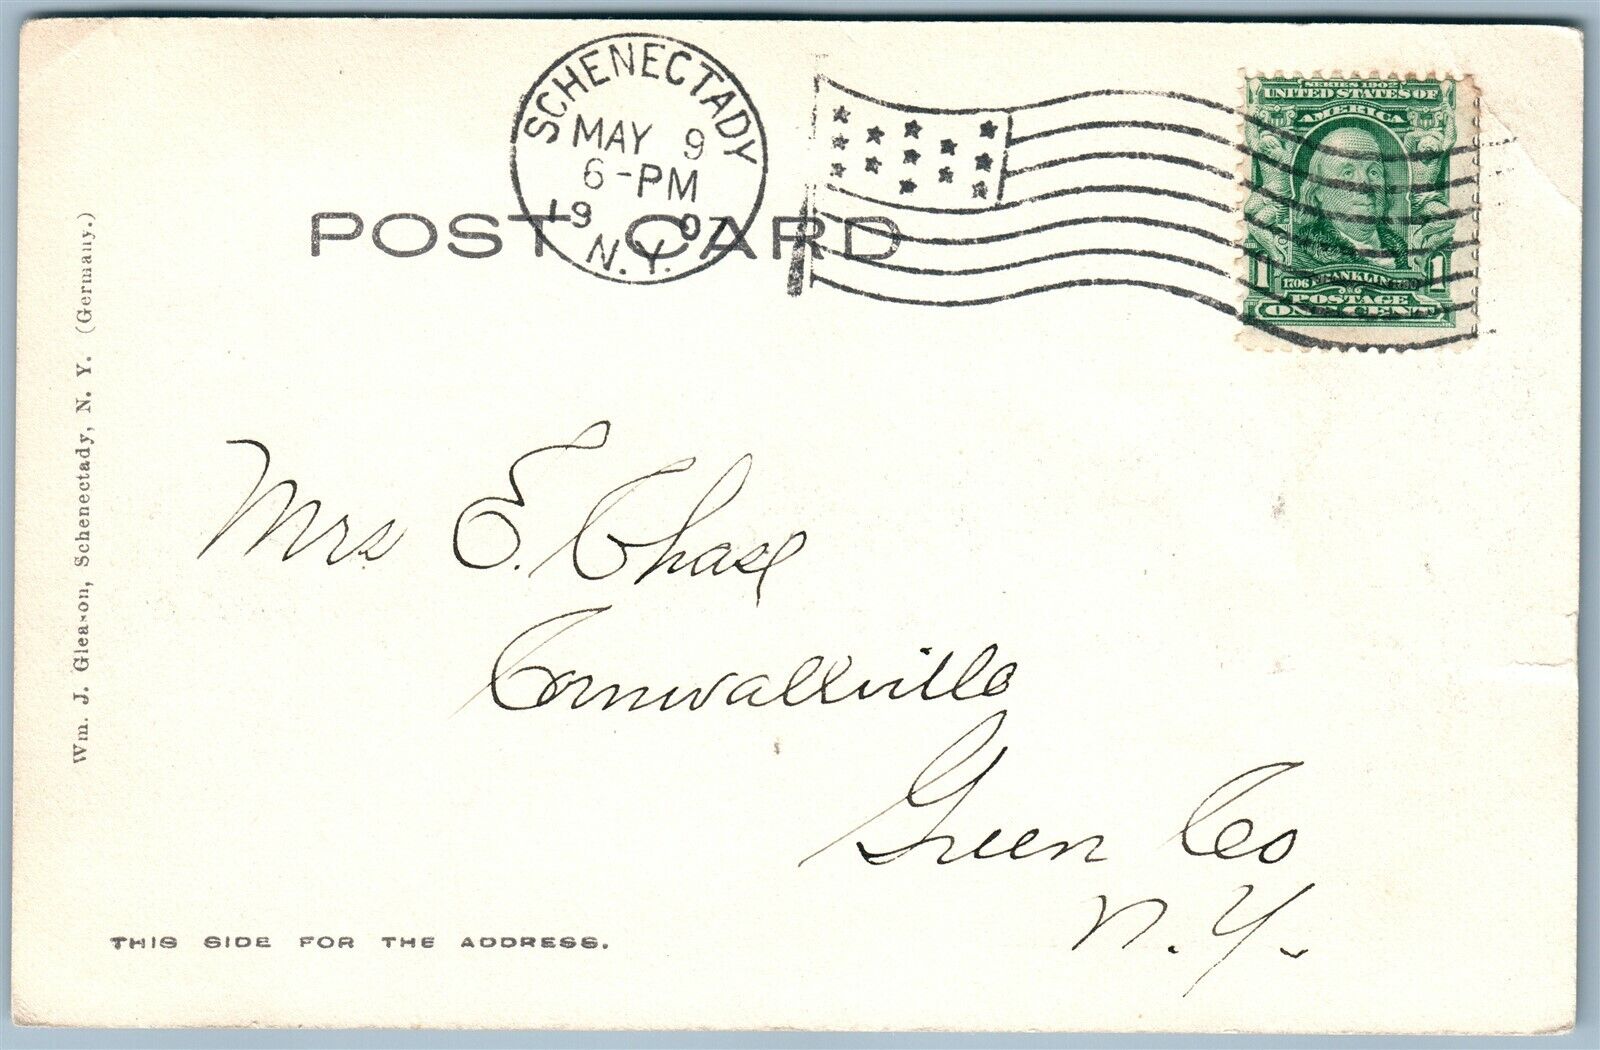 SCHENECTADY
MAY 9
6-PM
1907
N.Y.
SERIES 1902
UNITED STATES OF
AMERICA
1 1706 FRANKLIN 1
POSTAGE
ONE CENT
POST CARD
Wm. J. Gleason, Schenectady, N. Y. (Germany.)
Mrs E. Chase
Cornwallville
Green Co
N.Y.
THIS SIDE FOR THE ADDRESS.